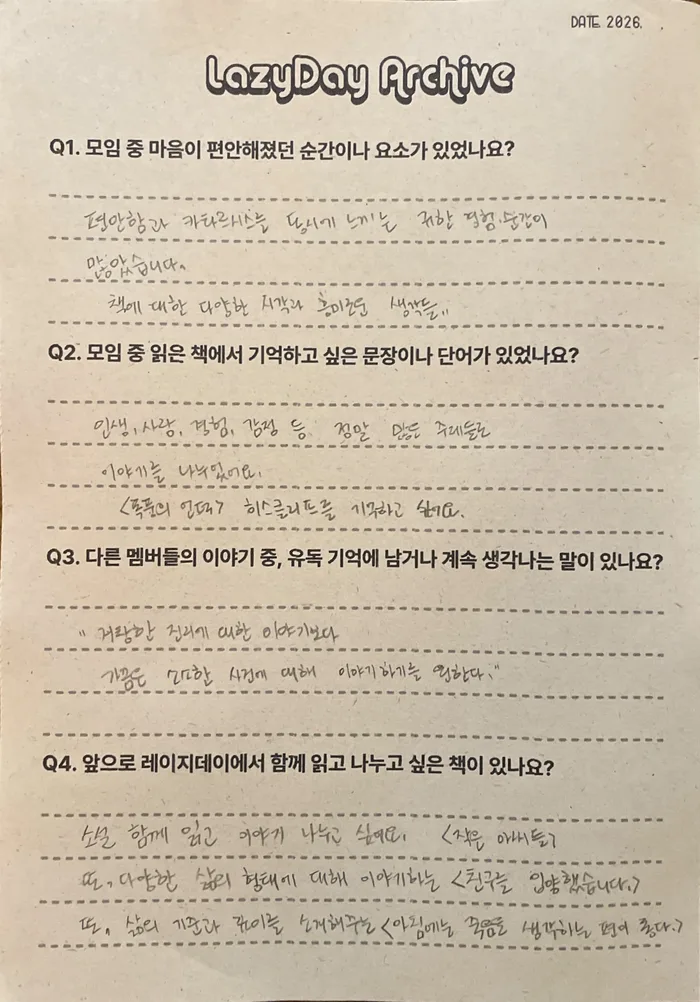 DATE. 2026.
LazyDay Archive
Q1. 모임 중 마음이 편안해졌던 순간이나 요소가 있었나요?
편안함과 카타르시스를 동시에 느끼는 귀한 경험·순간이
많았습니다.
책에 대한 다양한 시각과 흥미로운 생각들..
Q2. 모임 중 읽은 책에서 기억하고 싶은 문장이나 단어가 있었나요?
인생, 사랑, 경험, 감정 등 정말 많은 주제들로
이야기를 나누었어요.
<폭풍의 언덕> 히스클리프를 기억하고 싶어요.
Q3. 다른 멤버들의 이야기 중, 유독 기억에 남거나 계속 생각나는 말이 있나요?
" 거창한 진리에 대한 이야기보다
가끔은 소소한 사건에 대해 이야기하기를 원한다."
Q4. 앞으로 레이지데이에서 함께 읽고 나누고 싶은 책이 있나요?
소설 함께 읽고 이야기 나누고 싶어요. <작은 아씨들>
또, 다양한 삶의 형태에 대해 이야기하는 <친구를 입양했습니다.>
또, 삶의 기준과 깊이를 소개해주는 <아침에는 죽음을 생각하는 편이 좋다.>